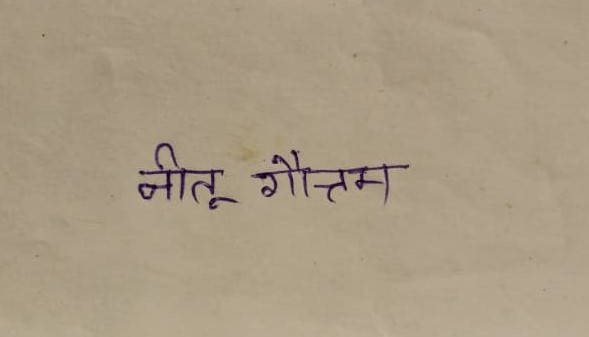 नीतू गौत्तम